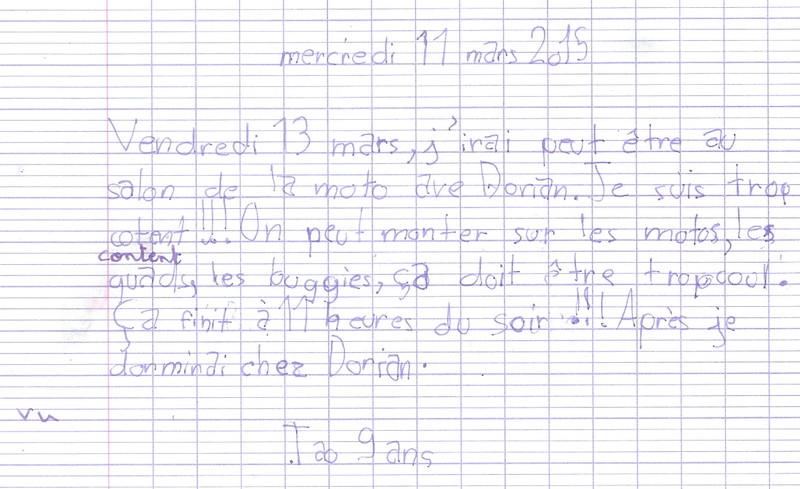 mercredi 11 mars 2015
Vendredi 13 mars, j'irai peut être au
salon de la moto ave Dorian. Je suis trop
cotent!!! On peut monter sur les motos, les
content
quads, les buggies, ça doit être trop cool.
Ça finit à 11 heures du soir !!! Après je
dormirai chez Dorian.
vu
9 ans